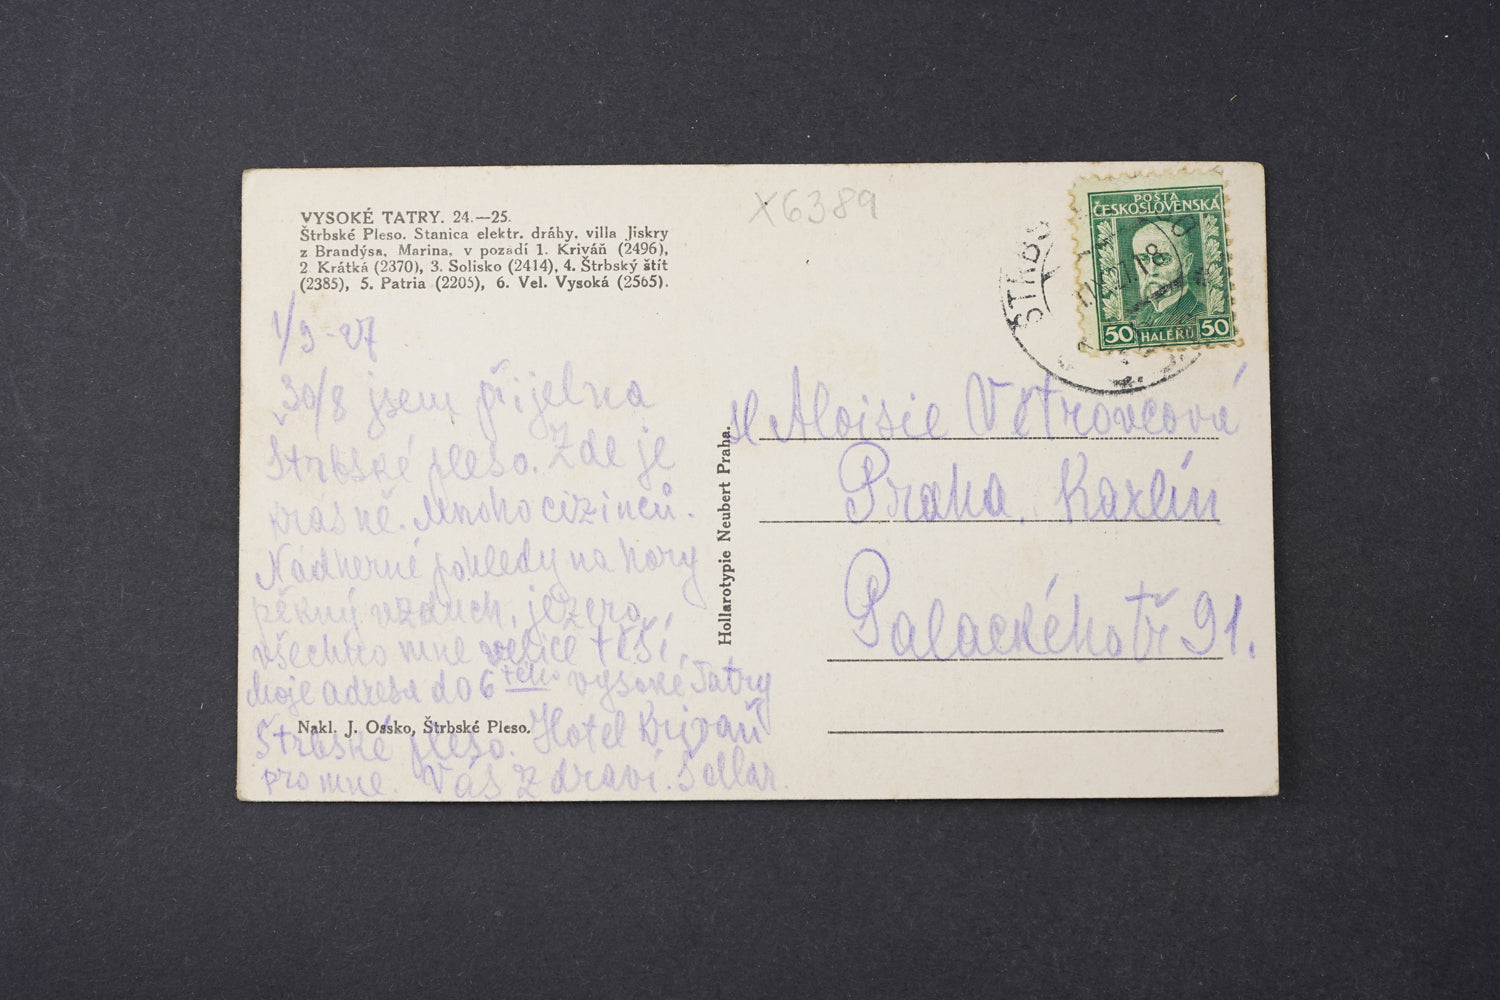 X6389
VYSOKÉ TATRY. 24.—25.
Štrbské Pleso. Stanica elektr. dráhy, villa Jiskry
z Brandýsa, Marina, v pozadí 1. Kriváň (2496),
2 Krátká (2370), 3. Solisko (2414), 4. Štrbský štít
(2385), 5. Patria (2205), 6. Vel. Vysoká (2565).
1/9-27
30/8 jsem přijel na
Štrbské pleso. Zde je
krásně. Mnoho cizinců.
Nádherné pohledy na hory
pěkný vzduch, jezero,
všechno mne velice těší.
Moje adresa do 6 tého vysoké Tatry
Štrbské pleso. Hotel Kriváň
pro mne. Vás zdraví.
Nakl. J. Ossko, Štrbské Pleso.
Hollarotypie Neubert Praha.
POŠTA
ČESKOSLOVENSKÁ
50 HALÉŘŮ 50
ŠTRBS
sl Aloisie Větrovcová
Praha. Karlín
Palackého tř 91.